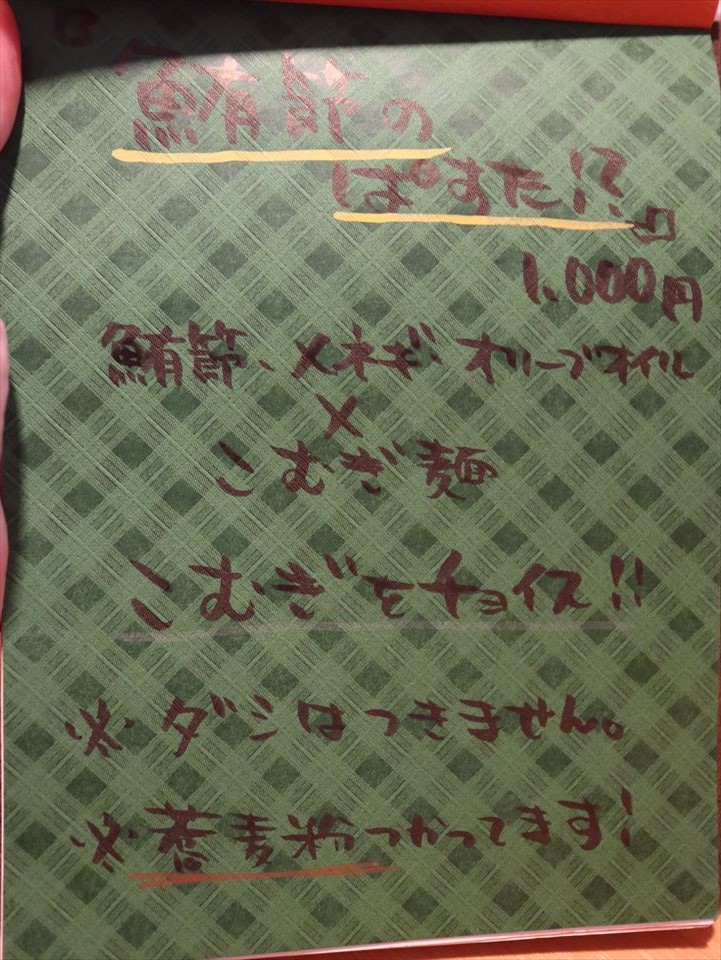 『鮪節の
ぱすた!?』
1,000円
鮪節、メネギ、オリーブオイル
×
こむぎ麺
こむぎをチョイス!!
※ダシはつきません。
※蕎麦粉つかってます!